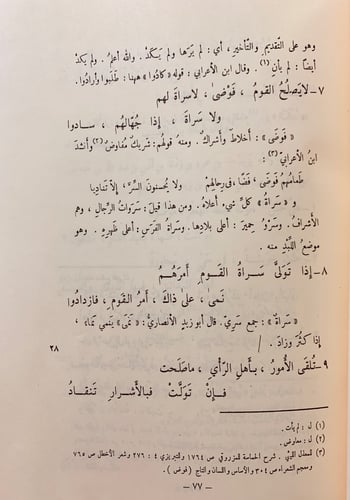 وهو على التقديم والتأخير، أي : لم يَرَها ولم يَكَدْ . والله أعلمُ . ولم يكد
أيضاً : لم بأنِ (١) . وقال ابن الأعرابي : قوله «كادُوا» ههنا : طَلَبُوا وأرادُوا.
٧ – لايَصلُحُ القومُ ، فَوْضىٰ ، لاسَراةَ لهم
ولا سَراةَ ، إذا جُهّالُهم ، سادوا
« فَوْضَى » : أخلاطٌ وأشراكٌ . ومنه قولهُم : شَريكٌ مُفاوضٌ (٢) وأنشدَ
ابنُ الأعرابيّ (٣) :
طَعامُهُم فَوْضَى ، فَضًا ، في رِحالِهِم ولا يُحسنونَ السِّرَّ ، إلاّ تَنادِيا
و « سَراةُ » كلِّ شيءٍ : أعلاهُ . ومن هذا قيلَ : سَرَواتُ الرِّجالِ ، وهم
الأشرافُ . وسَرْوُ حِميَرَ : أعلى بلادِها . وسَراةُ الفَرَسِ : أعلى ظَهرِهِ . وهو
موضعُ اللِّبْدِ منه .
٨ – إذا تَوَلَّى سَراةُ القَومِ أمرَهُمُ
نَمى ، على ذاكَ ، أمرُ القومِ ، فازدادُوا
« سَراةٌ » : جمع سَرِيّ . قال أبو زيدٍ الأنصاريُّ : « نَمَى » يَنمي نَماءً ،
إذا كثُرَ وزادَ . /
٢٨
٩ – تُلقَى الأمُورُ ، بأهلِ الرّأيِ ، ماصَلَحت
فإنْ تَوَلَّتْ فبالأشرارِ تَنقادُ
(١) ل : لم يأت .
(٢) ل : معاوض .
(٣) للمعذل الليثي . شرح الحماسة للمرزوقي ص ١٧٦٤ والتبريزي ٤ : ٢٧٦ وشعر الأخطل ص ٧٦٥
ومعجم الشعراء ص ٣٠٤ والأساس واللسان والتاج ( فوض ) .
– ٧٧ –